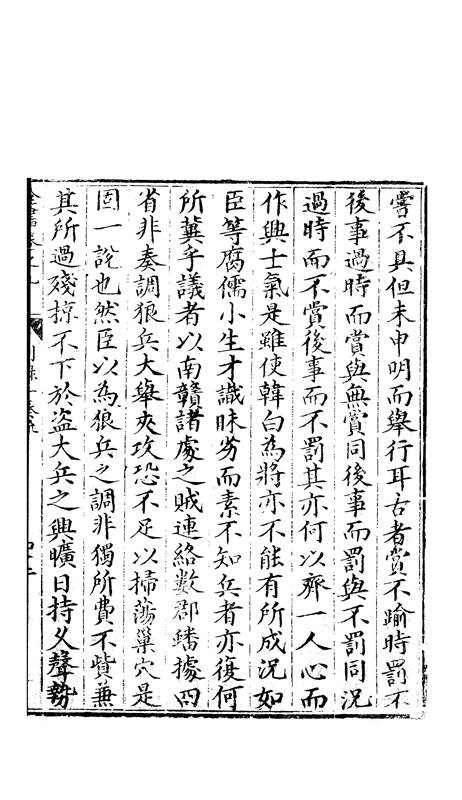 嘗不具但未申明而舉行耳古者賞不踰時罰不
後事過時而賞與無賞同後事而罰與不罰同況
過時而不賞後事而不罰其亦何以齊一人心而
作興士氣是雖使韓白為將亦不能有所成況如
臣等腐儒小生才識昧劣而素不知兵者亦復何
所冀乎議者以南贛諸處之賊連絡數郡蟠據四
省非奏調狼兵大舉夾攻恐不足以掃蕩巢穴是
固一說也然臣以為狼兵之調非獨所費不貲兼
其所過殘掠不下於盗大兵之興曠日持久聲勢